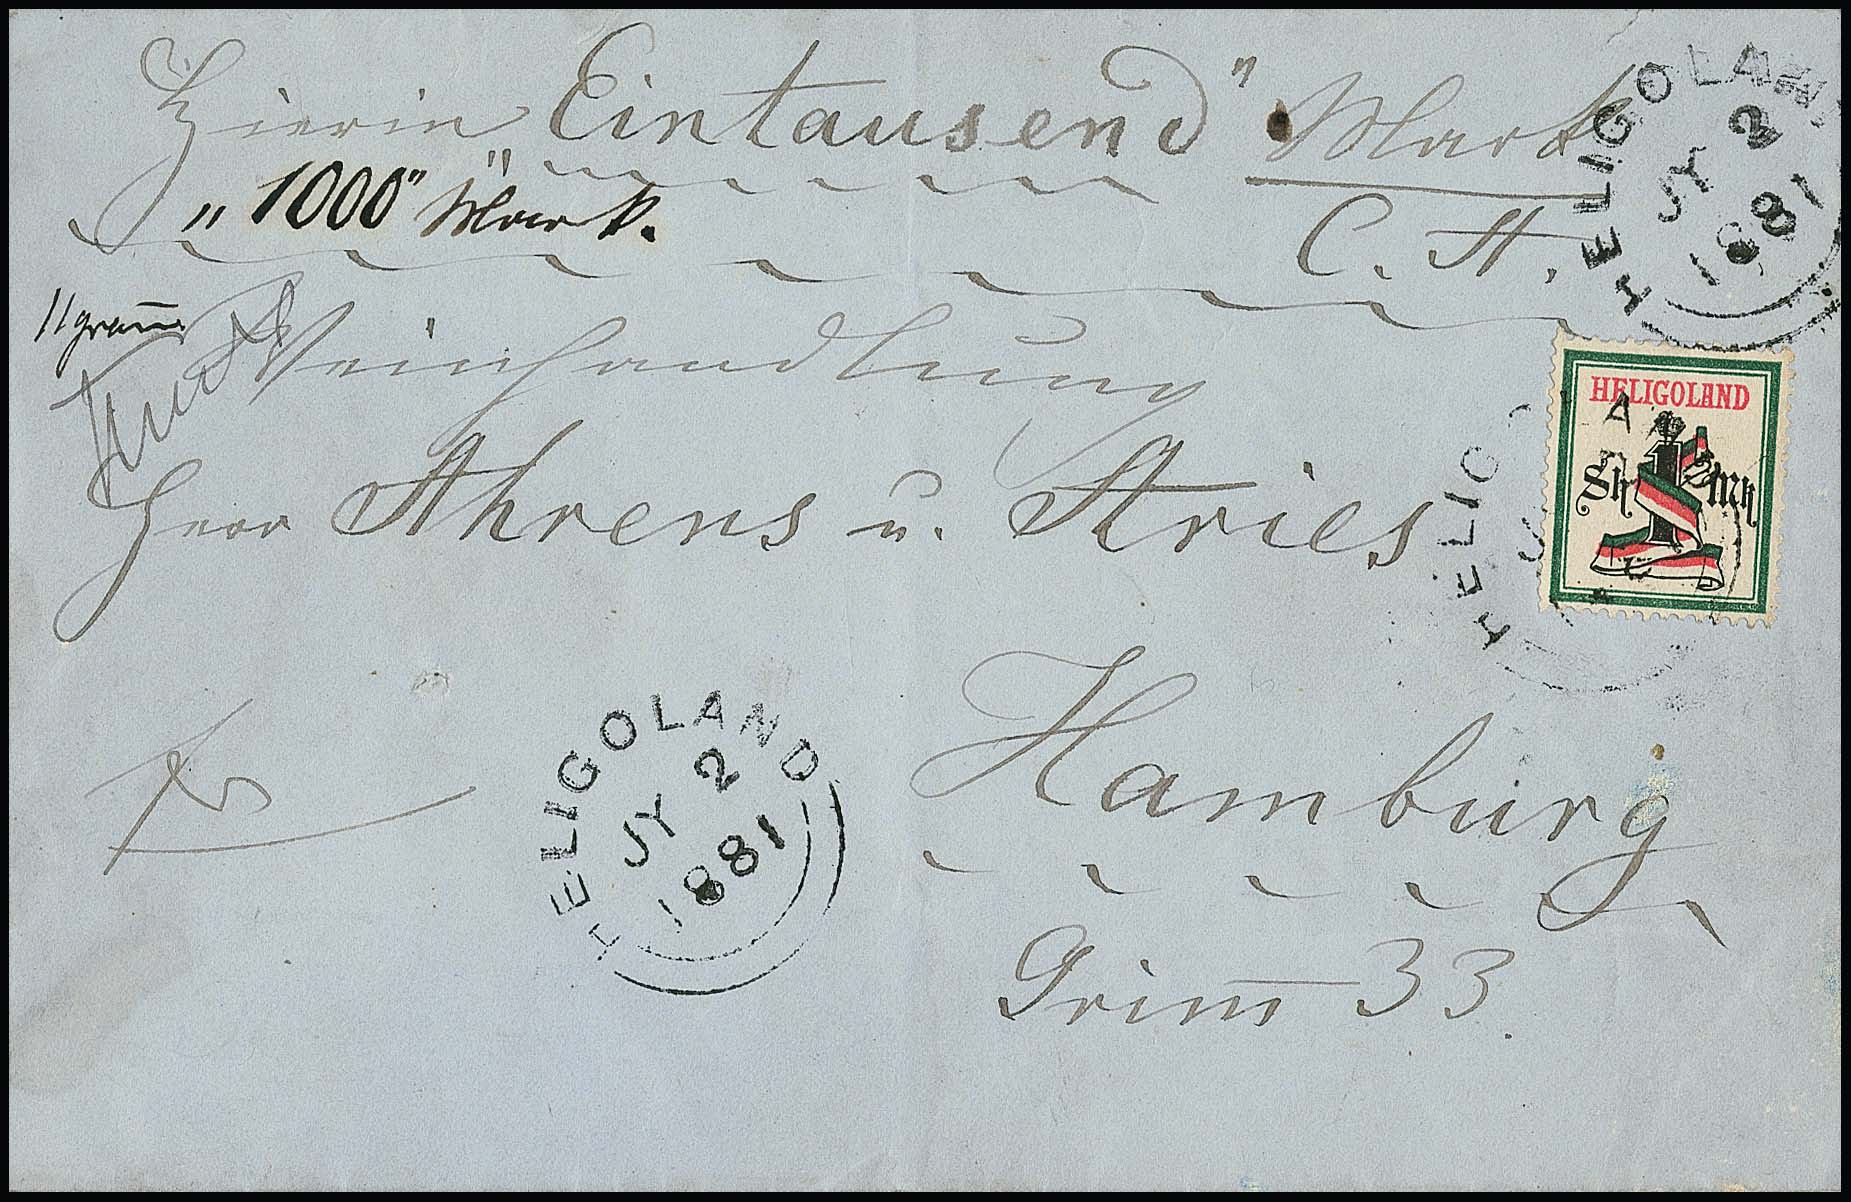 Hierin „Eintausend” Mark
„1000” Mark.
C. H.
11 gramm
Weinhandlung
Herr Ahrens u. Aries
Hamburg
Grimm 33.
HELIGOLAND
JY 2
1881
HELIGOLAND
1 Sh 1 Mk
HELIGOLAND
HELIGOLAND
JY 2
1881